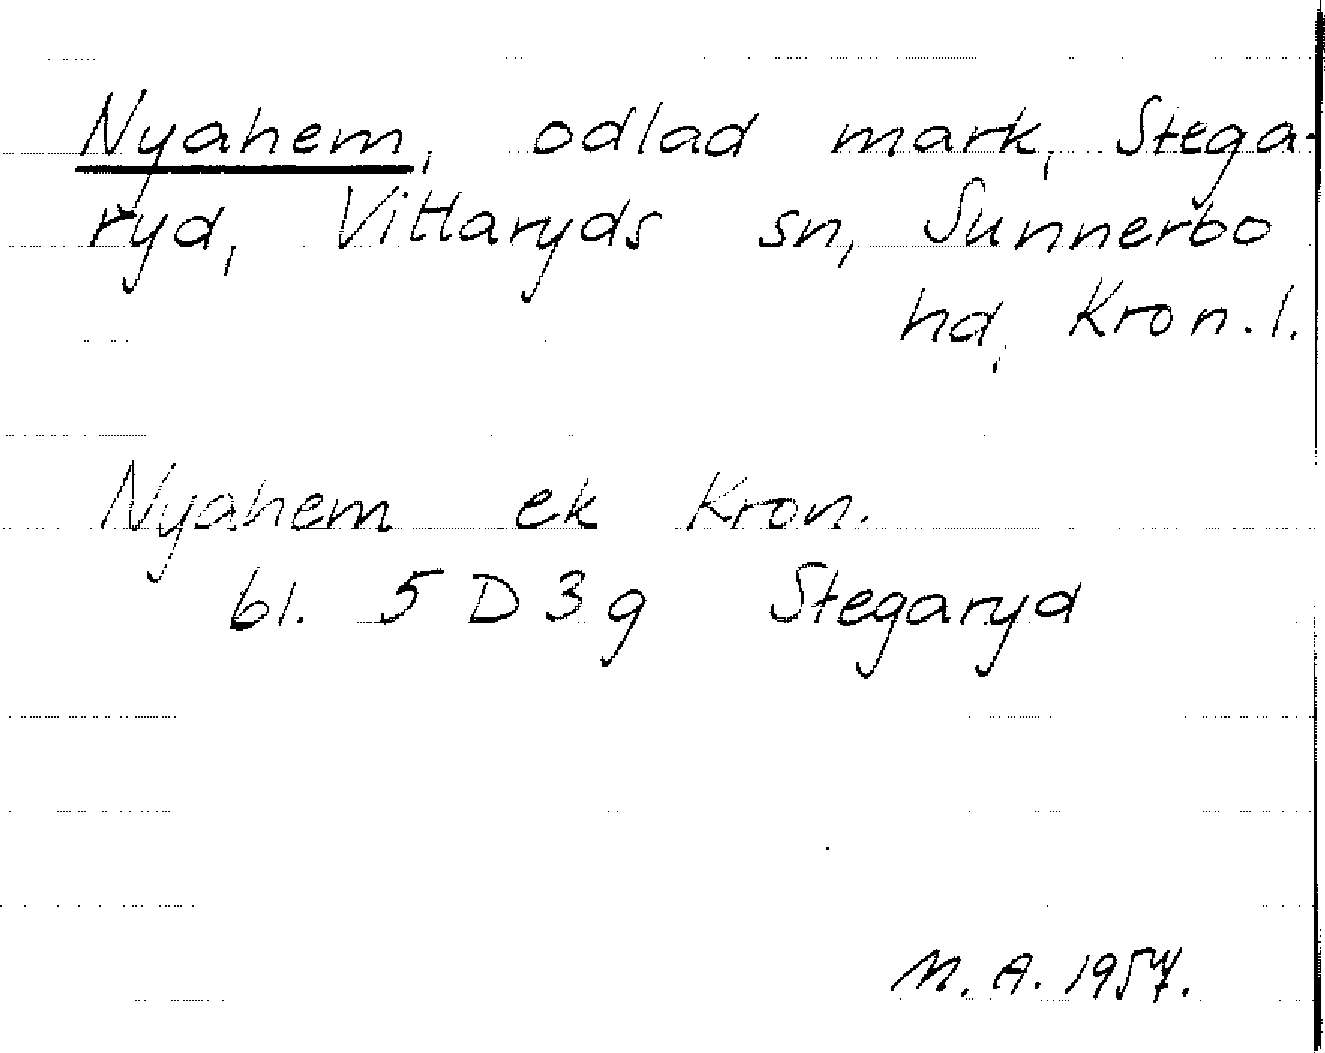 Nyahem, odlad mark, Stega-
ryd, Vittaryds sn, Sunnerbo
hd, Kron. l.
Nyahem ek Kron.
bl. 5 D 3 g Stegaryd
M. A. 1957.